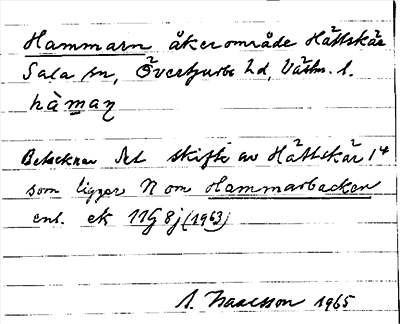 Hammarn åkerområde Hättskär
Sala sn, Övertjurbo hd, Västm. l.
hàmaɳ
Betecknar det skifte av Hättskär 1⁴
som ligger N om Hammarbacken
enl. ek 11G 8j (1963)
A. Isaacsson 1965